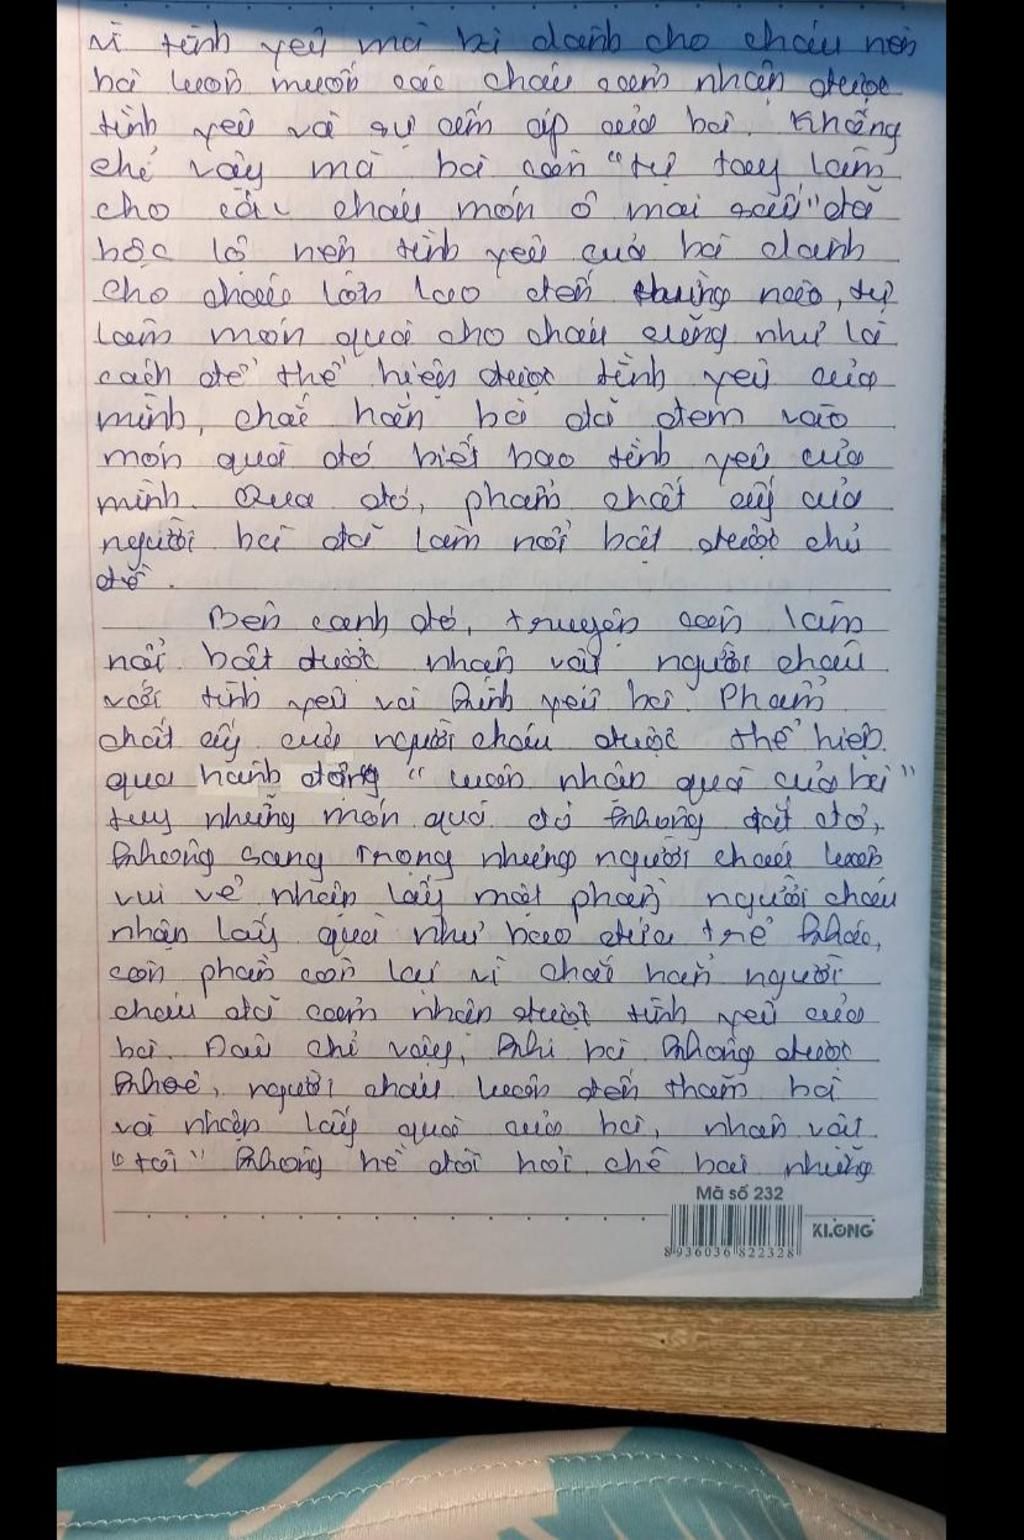 vì tình yêu mà bà dành cho cháu nên
bà luôn muốn các cháu cảm nhận được
tình yêu và sự ấm áp của bà. Không
chỉ vậy mà bà còn "tự tay làm
cho các cháu món ô mai sấu" đã
bộc lộ nên tình yêu của bà dành
cho cháu lớn lao đến thường nào, tự
làm món quà cho cháu cũng như là
cách để thể hiện được tình yêu của
mình, chắc hẳn bà đã đem vào
món quà đó biết bao tình yêu của
mình. Qua đó, phẩm chất ấy của
người bà đã làm nổi bật được chủ
đề.
Bên cạnh đó, truyện còn làm
nổi bật được nhân vật người cháu
với tình yêu và kính yêu bà. Phẩm
chất ấy của người cháu được thể hiện
qua hành động "luôn nhận quà của bà"
tuy những món quà đó không đắt đỏ,
không sang trọng nhưng người cháu luôn
vui vẻ nhận lấy một phần người cháu
nhận lấy quà như bao đứa trẻ khác,
còn phần còn lại vì chắc hẳn người
cháu đã cảm nhận được tình yêu của
bà. Đâu chỉ vậy, khi bà không được
khoẻ, người cháu luôn đến thăm bà
và nhận lấy quà của bà, nhân vật
"tôi" không hề đòi hỏi, chê bai những
Mã số 232
KLONG
8936036822328